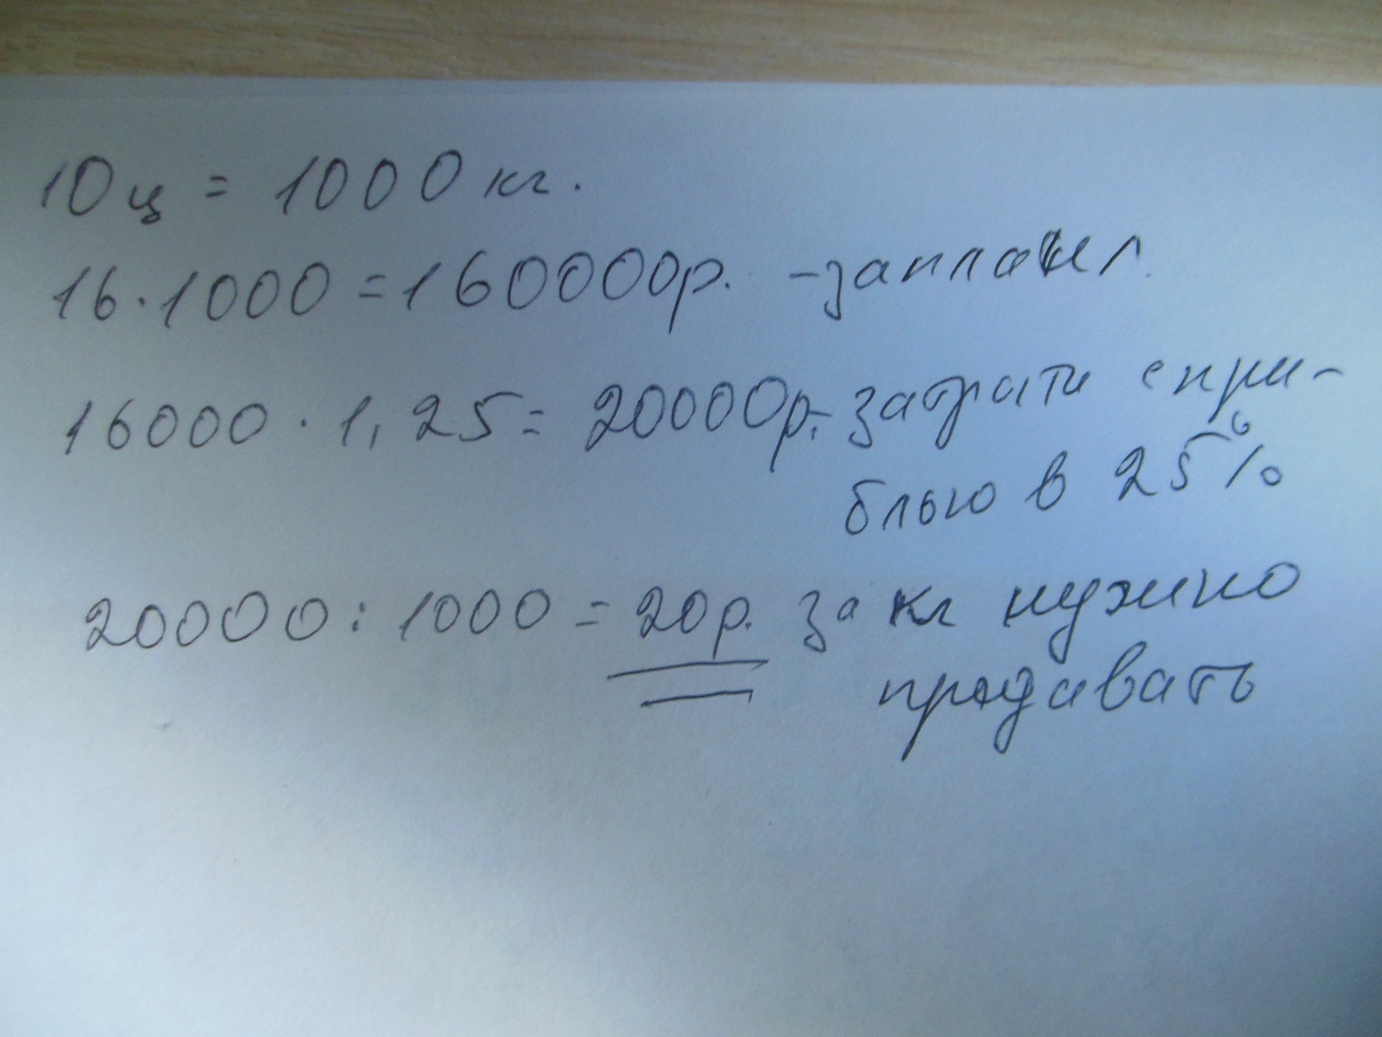 10 ц = 1000 кг.
16·1000 = 160000р. - заплатил
16000 · 1,25 = 20000р. - затрати с при-
былью в 25%
20000 : 1000 = 20р. за кг нужно
продавать